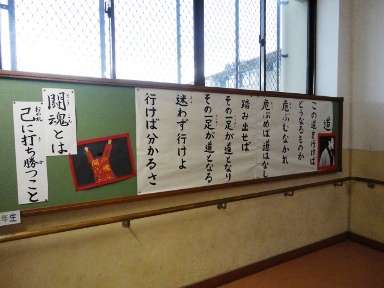 道
この道を行けば
どうなるものか
危ぶむなかれ
危ぶめば道はなし
踏み出せば
その一足が道となり
その一足が道となる
迷わず行けよ
行けば分かるさ
闘魂とは
己に打ち勝つこと